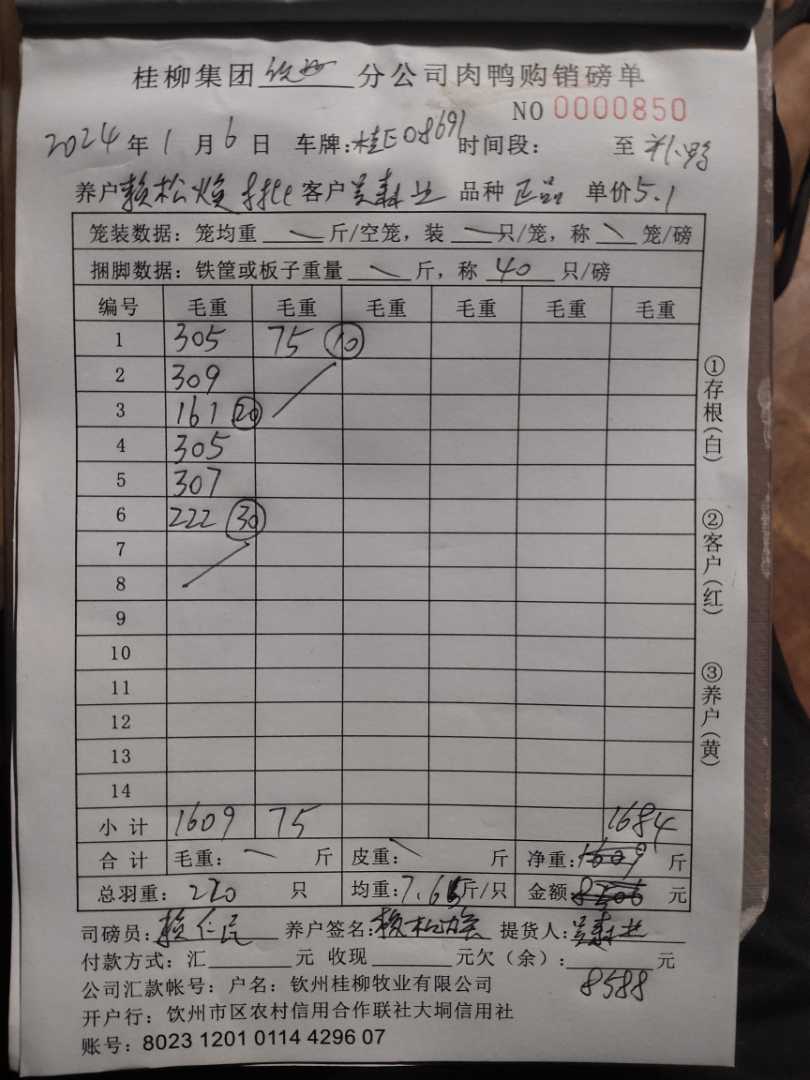 桂柳集团钦州分公司肉鸭购销磅单
NO 0000850
2024年1月6日 车牌:桂E08691 时间段: 至 补鸭
养户赖松焕 客户吴森业 品种正品 单价5.1
笼装数据:笼均重 斤/空笼,装 只/笼,称 笼/磅
捆脚数据:铁筐或板子重量 斤,称 40 只/磅
编号 毛重 毛重 毛重 毛重 毛重 毛重
1 305 75 10
2 309
3 161 20
4 305
5 307
6 222 30
7
8
9
10
11
12
13
14
小计 1609 75 1684
合计 毛重: 斤 皮重: 斤 净重:1609 斤
总羽重:220 只 均重:7.65斤/只 金额 8206 元
司磅员:赖仁民 养户签名:赖松焕 提货人:吴森业
付款方式:汇 元 收现 元欠(余): 元
8588
公司汇款帐号:户名:钦州桂柳牧业有限公司
开户行:钦州市区农村信用合作联社大垌信用社
账号:8023 1201 0114 4296 07
①存根(白)
②客户(红)
③养户(黄)